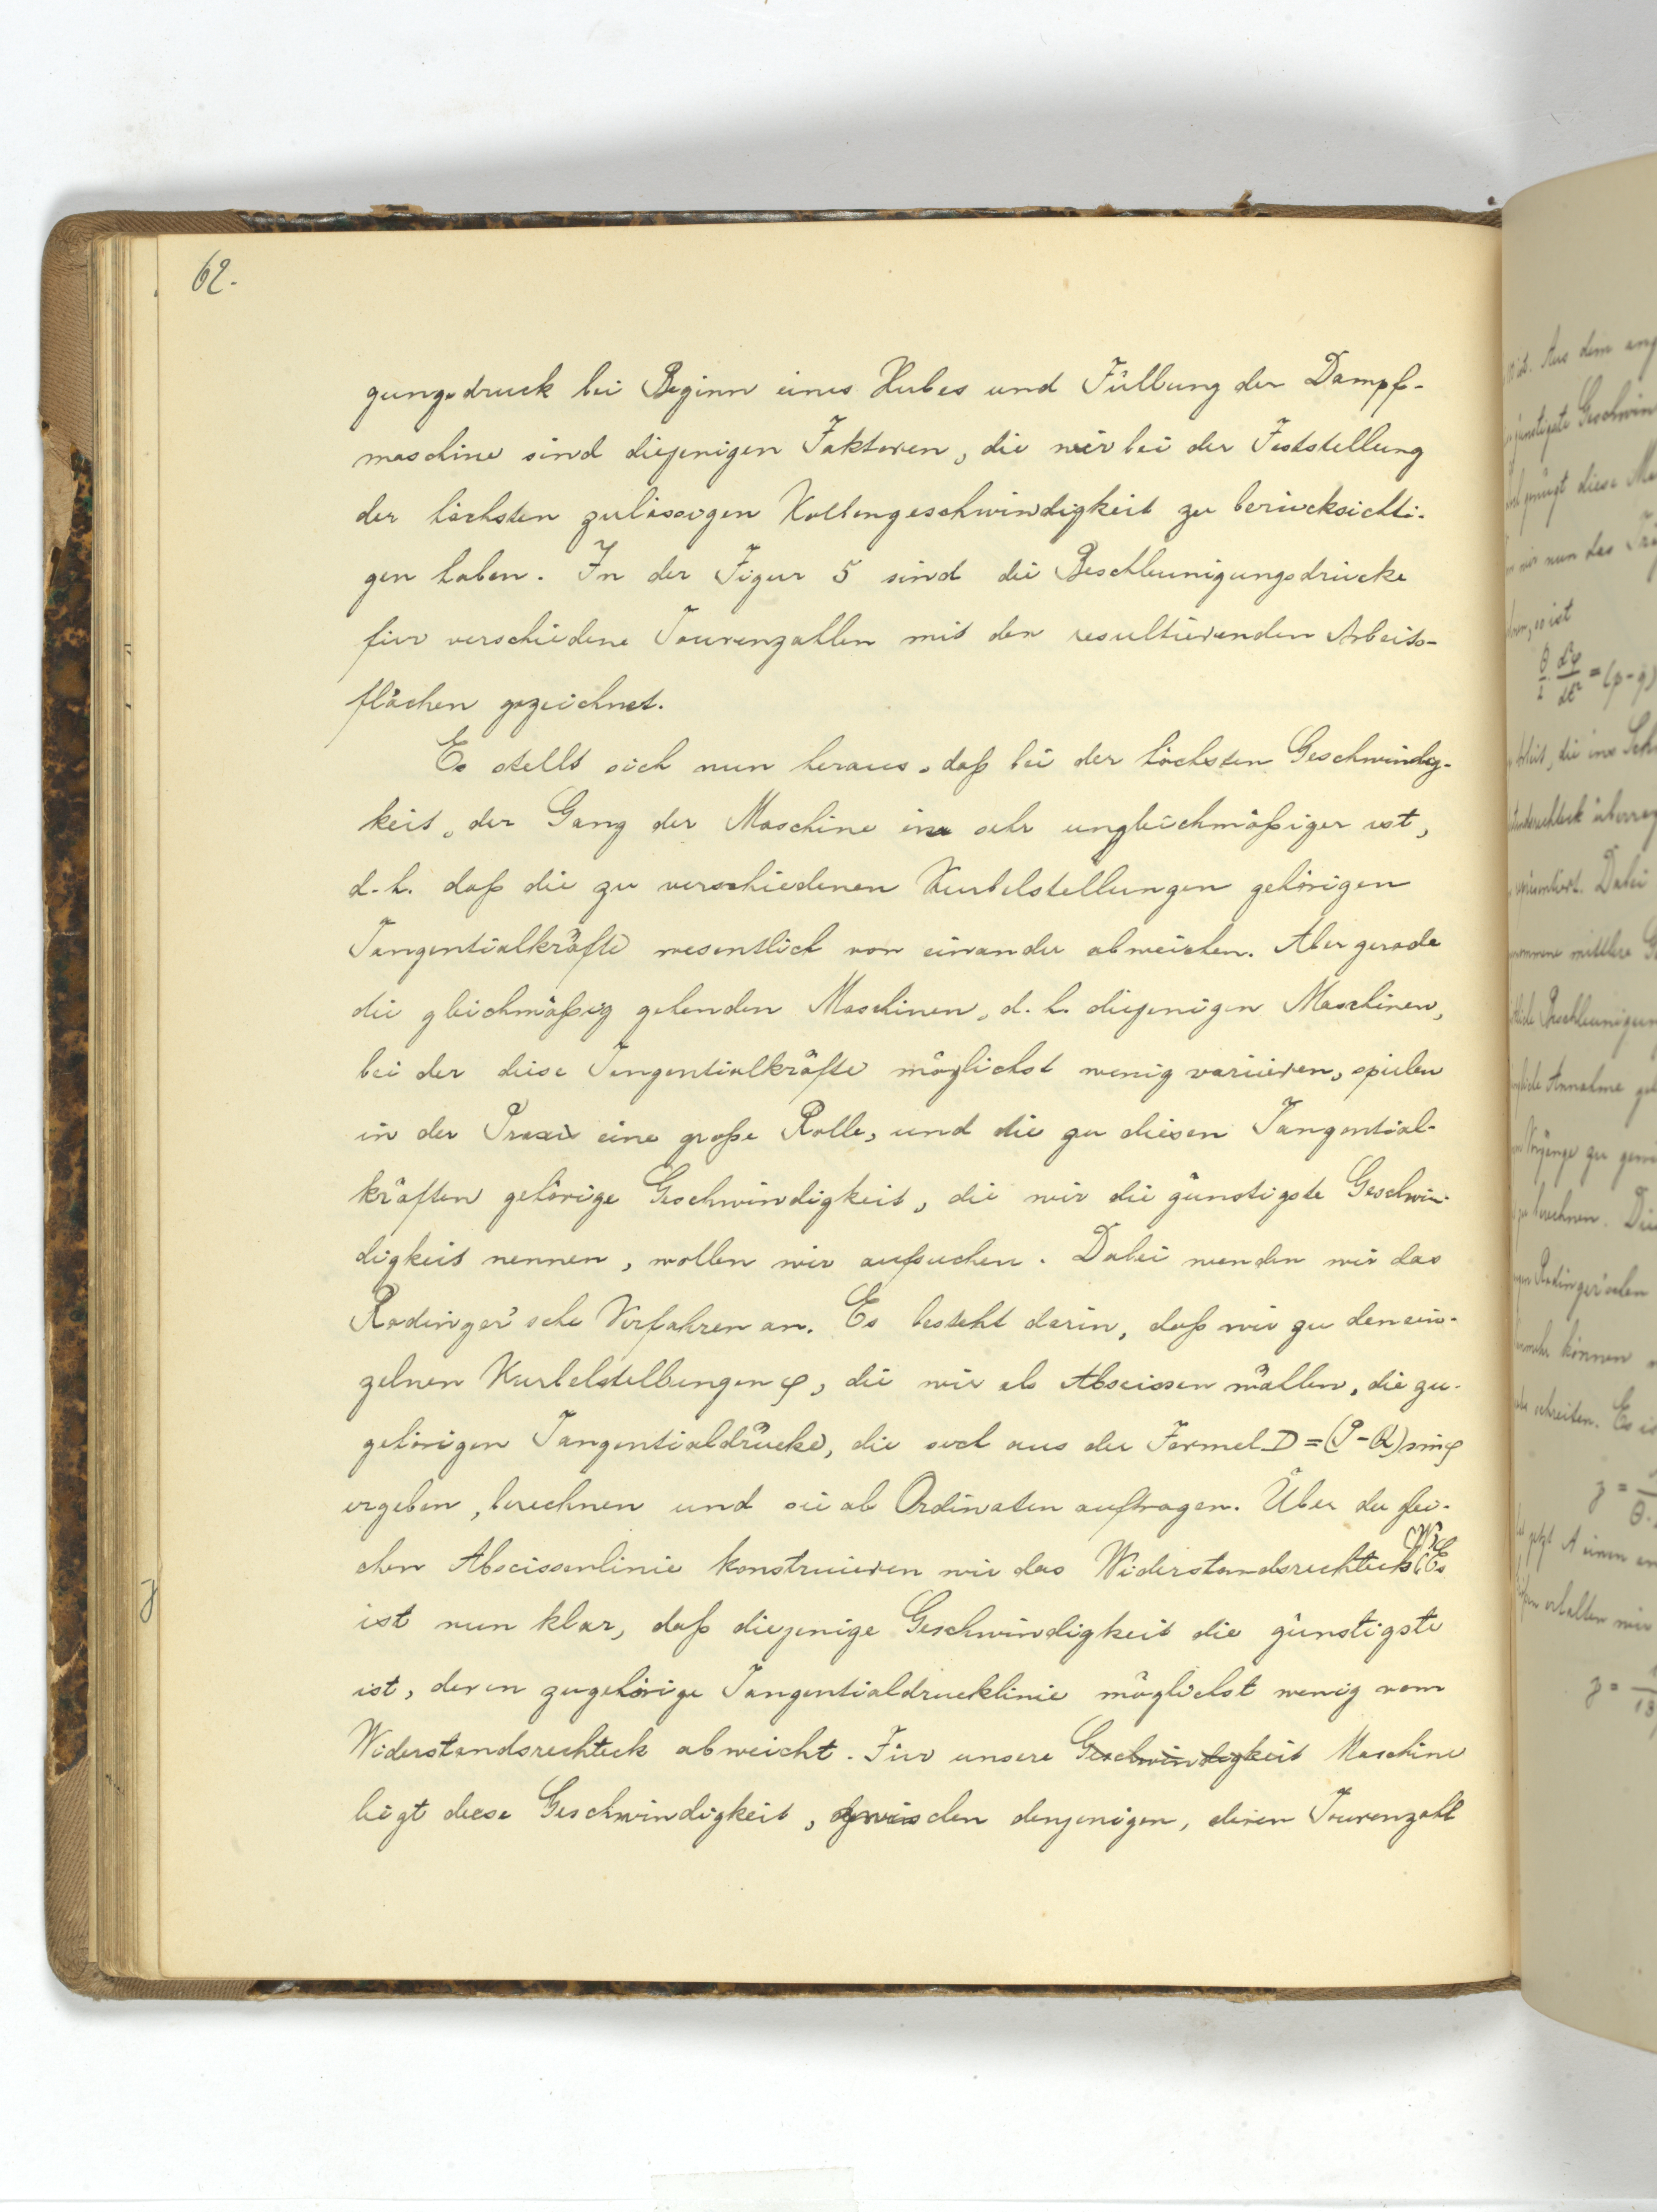 62.
gungsdruck bei Beginn eines Hubes und Füllung der Dampf-
maschine sind diejenigen Faktoren, die wir bei der Feststellung
der höchsten zulässigen Kolbengeschwindigkeit zu berücksichti-
gen haben. In der Figur 5 sind die Beschleunigungsdrücke
für verschiedene Tourenzahlen mit den resultierenden Arbeits-
flächen gezeichnet.
Es stellt sich nun heraus, daß bei der höchsten Geschwindig-
keit, der Gang der Maschine ein sehr ungleichmäßiger ist,
d.h. daß die zu verschiedenen Kurbelstellungen gehörigen
Tangentialkräfte wesentlich von einander abweichen. Aber gerade
die gleichmäßig gehenden Maschinen, d.h. diejenigen Maschinen,
bei der diese Tangentialkräfte möglichst wenig variieren, spielen
in der Praxis eine große Rolle, und die zu diesen Tangential-
kräften gehörige Geschwindigkeit, die wir die günstigste Geschwin-
digkeit nennen, wollen wir aufsuchen. Dabei wenden wir das
Radinger'sche Verfahren an. Es besteht darin, daß wir zu den ein-
zelnen Kurbelstellungen φ, die wir als Abscissen wählen, die zu-
gehörigen Tangentialdrücke, die sich aus der Formel D = (P - Q) sin φ
ergeben, berechnen und sie als Ordinaten auftragen. Über der glei-
chen Abscissenlinie konstruieren wir das Widerstandsrechteck (W). Es
ist nun klar, daß diejenige Geschwindigkeit die günstigste
ist, deren zugehörige Tangentialdrucklinie möglichst wenig vom
Widerstandsrechteck abweicht. Für unsere Geschwindigkeit Maschine
liegt diese Geschwindigkeit, zwischen denjenigen, deren Tourenzahl